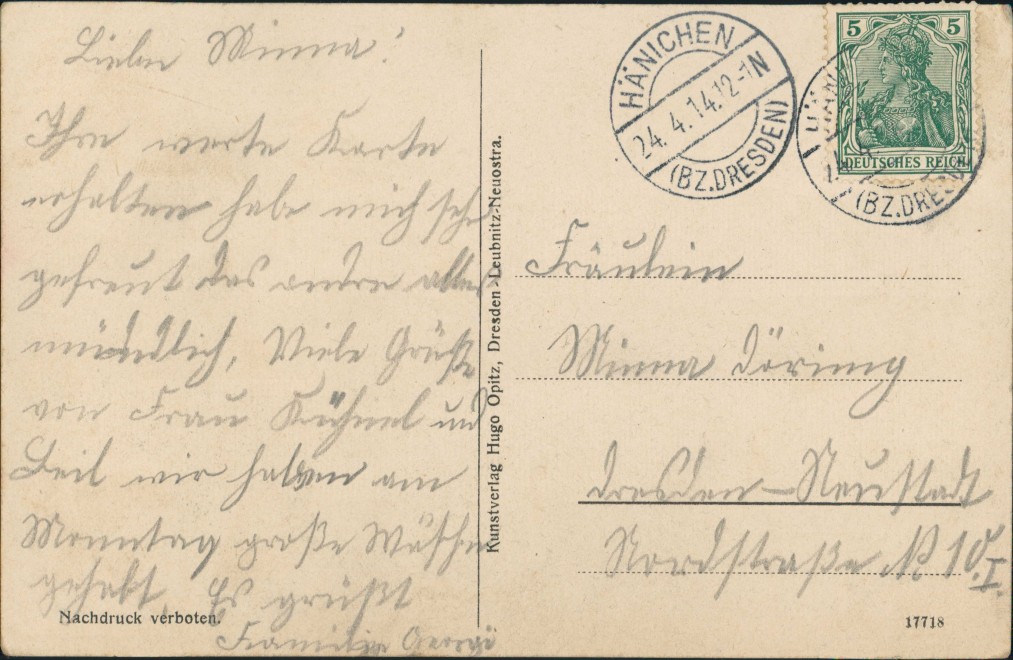 Liebe Minna!
Ihre werte Karte
erhalten habe mich sehr
gefreut das andre alles
mündlich, Viele Grüße
von Frau Kühnel und
wir haben am
Monntag große Wäsche
gehabt, Es grüßt
Familie Georgi
Nachdruck verboten.
Kunstverlag Hugo Opitz, Dresden-Leubnitz-Neuostra.
HÄNICHEN
24.4.14.12-1N
(BZ.DRESDEN)
5 5
DEUTSCHES REICH
HÄN
(BZ.DRESD
Fräulein
Minna Döring
Dresden-Neustadt
Nordstraße № 10 I.
17718